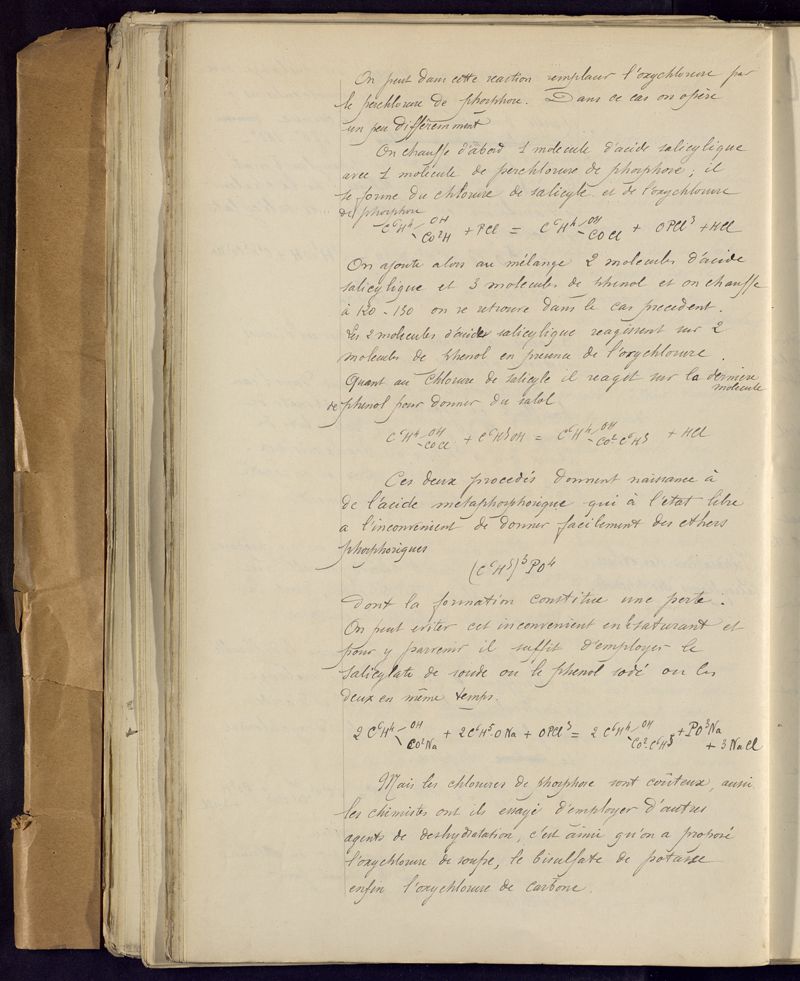 On peut dans cette reaction remplacer l'oxychlorure par
le perchlorure de phosphore. Dans ce cas on opère
un peu différemment
On chauffe d'abord 1 molecule d'acide salicylique
avec 1 molécule de perchlorure de phosphore ; il
se forme du chlorure de salicyle et de l'oxychlorure
de phosphore
C⁶H⁴ OH CO²H + PCl = C⁶H⁴ OH COCl + OPCl³ + HCl
On ajoute alors au mélange 2 molecules d'acide
salicylique et 3 molecules de phenol et on chauffe
à 120 - 130 on se retrouve dans le cas precedent.
Les 2 molecules d'acide salicylique reagissent sur 2
molecules de phenol en presence de l'oxychlorure.
Quant au Chlorure de salicyle il reagit sur la dernière
molecule
de phenol pour donner du salol
C⁶H⁴ OH COCl + C⁶H⁵OH = C⁶H⁴ OH CO²C⁶H⁵ + HCl
Ces deux procedés donnent naissance à
de l'acide metaphosphorique qui à l'état libre
a l'inconvenient de donner facilement des ethers
phosphoriques
(C⁶H⁵)³PO⁴
dont la formation constitue une perte.
On peut eviter cet inconvenient en l saturant et
pour y parvenir il suffit d'employer le
salicylate de soude ou le phenol sodé ou les
deux en même temps.
2 C⁶H⁴ OH CO²Na + 2C⁶H⁵-ONa + OPCl³ = 2 C⁶H⁴ OH CO²-C⁶H⁵ + PO³Na
+ 3 NaCl
Mais les chlorures de phosphore sont coûteux, aussi
les chimistes ont ils essayé d'employer d'autres
agents de deshydratation, c'est ainsi qu'on a proposé
l'oxychlorure de soufre, le bisulfate de potasse
enfin l'oxychlorure de carbone.